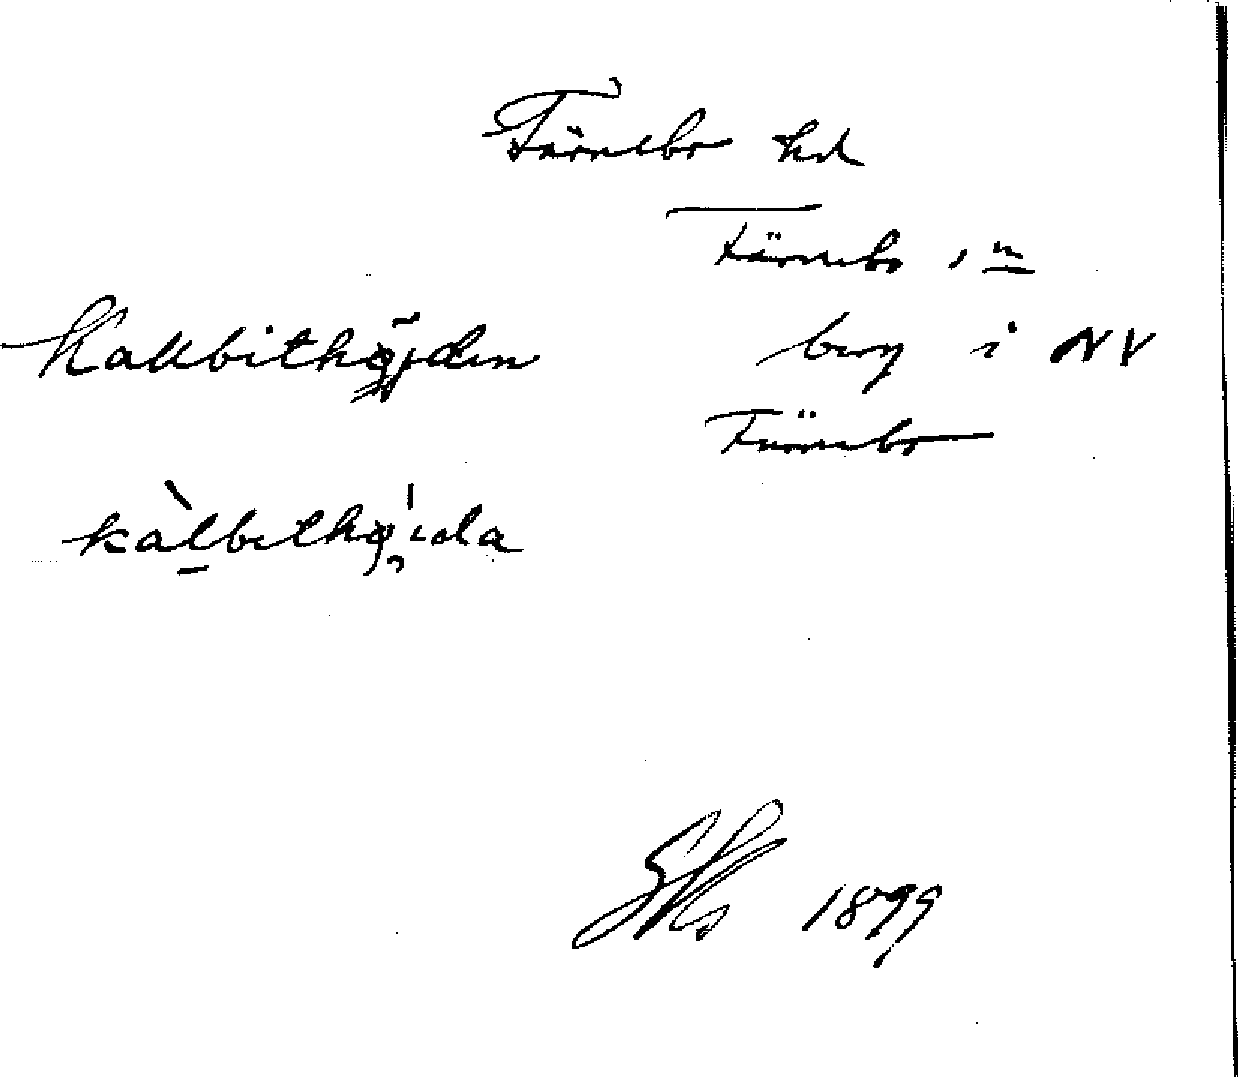 Färnebo hd
Färnebo sn
Kallbithöjden berg i NV
Färnebo
kàlbithöida
1899